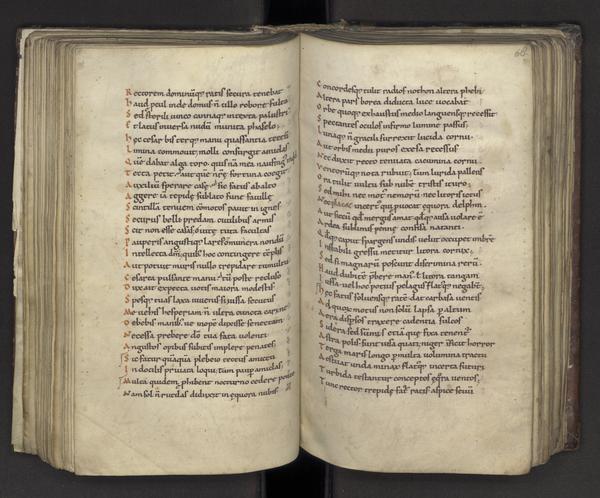 Rectorem dominumq; ratis secura tenebat
haud pcul inde domus n̄ ullo robore fulta
Sed sterili iunco cannaq; intexta palustri
Et latus inuersa nudū munita phaselo;
hęc cesar bis terq; manu quassantia tectū
Limina commouit; molli consurgit amiclas
Quē dabat alga toro. quis nā mea naufrag' inqt
Tecta petit; aut quē nrę fortuna coegit
Auxiliū sperare casę; sic fatus ab alto
Aggere iā tepidę sublato fune fauillę
Scintillā tenuem cōmotos pauit in ignes.
Securus belli; predam ciuilibus armis
Scit non esse casas; o uitę tuta facultas
Pauperis angustiq; lares; o munera nondū
Intellecta dm̄; quib; hoc contingere tēplis
Aut potuit muris nullo trepidare tumultu
Cesarea pulsante manu; tū poste recluso
Dux ait expecta uotis maiora modestis
Spesq; tuas laxa iuuenis; si iussa secutus
Me uehis hesperiam n̄ ultra cuncta carinę
Debebis manib; ue inopē duxisse senectam;
Ne cessa prebere dō tua fata uolenti
Angustos opibus subitis implere penates;
Sic fatur quāquā plebeio tectus amictu
Indocilis priuata loqui; tum paup amiclas;
Multa quidem phibent nocturno credere ponto
Nam sol n̄ rutilas diduxit in equora nubes
68
Concordesq; tulit radios nothon altera phebi
Altera pars borea diducta luce uocabat
Orbe quoq; exhaustus medio languensq; recessit
Spectantes oculos infirmo lumine passus;
Lunaq; n̄ gracili surrexit lucida cornu
Aut orbis medii puros exesa recessus
Nec duxit recto tenuata cacumina cornu
Ventorūq; nota rubuit; tum lurida pallens
Ora tulit uultu sub nube tristis ituro;
Sed mihi nec mot' nemorū nec litoris ictus
Nec placet incert' qui puocat equora delphin
Aut siccū qd mergus amat qdq; ausa uolare ē
Ardea sublimis pennę confisa natanti
Qdq; caput spargens undis uelut occupet imbrē
Instabili gressu metitur litora cornix;
Sed si magnarū poscunt discrimina rerū
Haud dubitē pbere man'; l̄ litora tangam
Iussa uel hoc potius pelagus flat'q; negabt̄;
hęc fatus soluensq; ratē dat carbasa uentis
Ad quos motus non solū lapsa p altum
Aera dispersos traxere cadentia sulcos
Sidera sed sūmis etiā que fixa tenent'
Astra polis sunt uisa quati; niger īficit horror
Terga maris longo p multa uolumina tractu
Aestuat unda minax flatuq; incerta futuri
Turbida testantur conceptos eq̄ra uentos;
Tunc rector trepidę fat' ratis aspice seuū